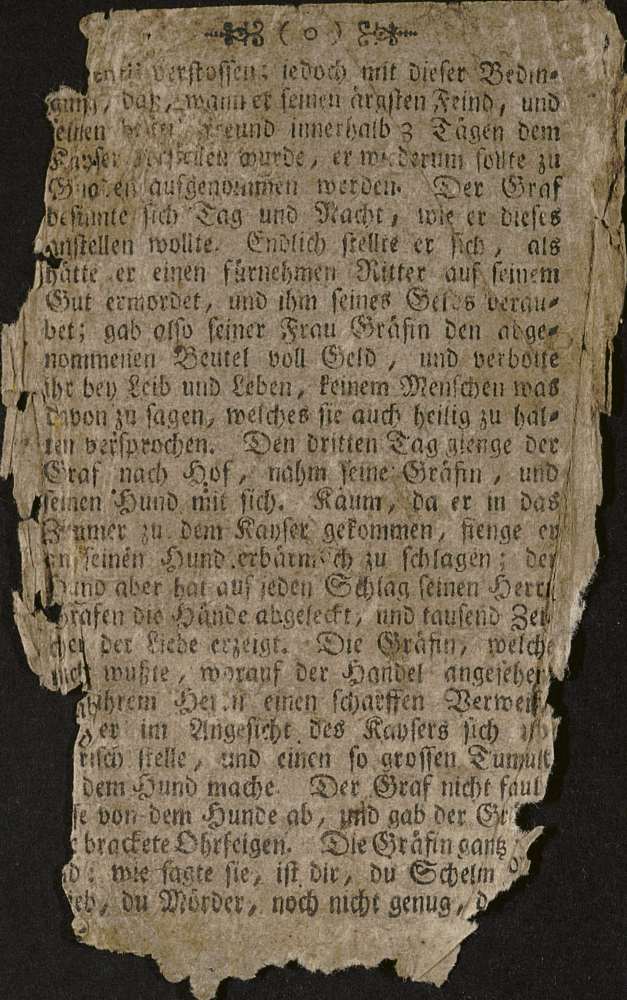 ( o )
verstossen: iedoch mit dieser Bedin-
gung, daß, wann er seinen ärgsten Feind, und
seinen Freund innerhalb 3 Tägen dem
Kayser vorstellen wurde, er wiederum sollte zu
Gnaden aufgenommen werden. Der Graf
besinnte sich Tag und Nacht, wie er dieses
anstellen wollte. Endlich stellte er sich, als
hätte er einen fürnehmen Ritter auf seinem
Gut ermordet, und ihm seines Gelds berau-
bet; gab also seiner Frau Gräfin den abge-
nommenen Beutel voll Geld, und verbotte
ihr bey Leib und Leben, keinem Menschen was
davon zu sagen, welches sie auch heilig zu hal-
ten versprochen. Den dritten Tag gienge der
Graf nach Hof, nahm seine Gräfin, und
seinen Hund mit sich. Kaum, da er in das
Zimmer zu dem Kayser gekommen, fienge er
an seinen Hund erbärmlich zu schlagen; der
Hund aber hat auf jeden Schlag seinen Herrn
Grafen die Hände abgeleckt, und tausend Zei-
chen der Liebe erzeigt. Die Gräfin, welche
nicht wußte, worauf der Handel angesehen
ihrem Herrn einen scharffen Verweiß
er im Angesicht des Kaysers sich
risch stelle, und einen so grossen Tumult
dem Hund mache. Der Graf nicht faul
se von dem Hunde ab, und gab der Gr
brackete Ohrfeigen. Die Gräfin gantz
d: wie sagte sie, ist dir, du Schelm
ieb, du Mörder, noch nicht genug, d